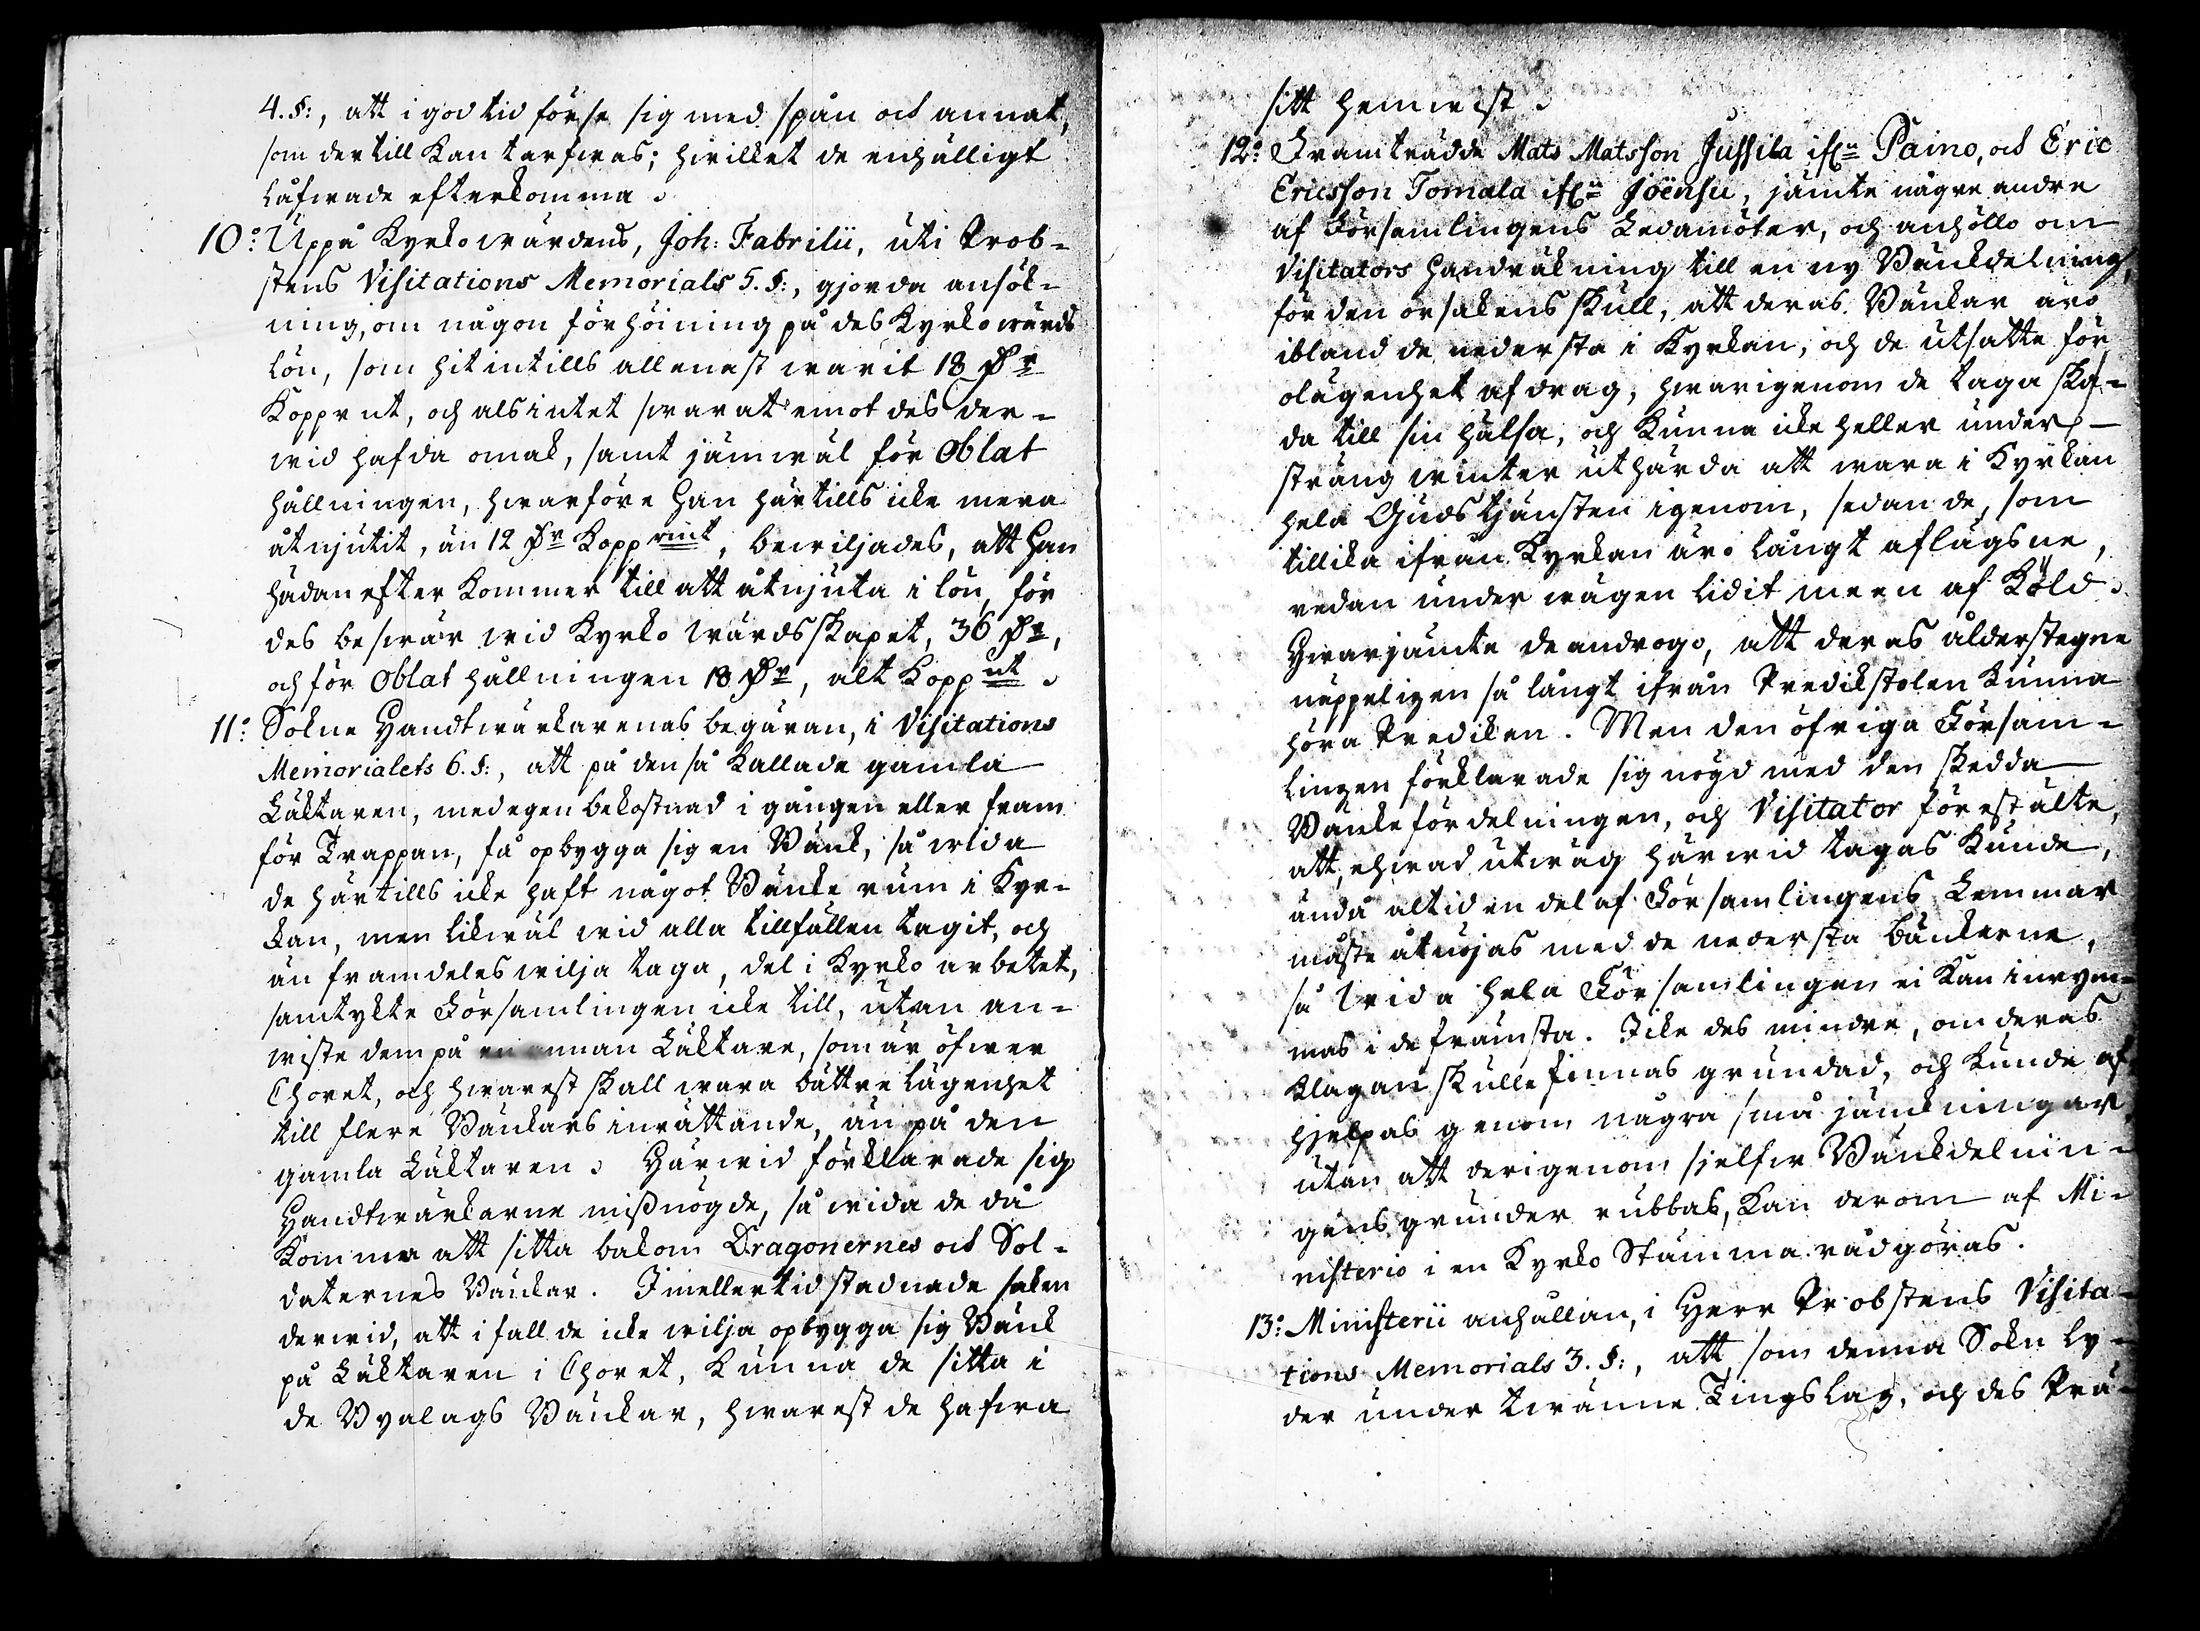 4. §:, att i god tid förse sig med spån och annat,
som dertill kan tarfwas; hwilket de enhälligt
låfwade efterkomma.
10:o Uppå Kyrkowärdens, Joh: Fabrilii, uti Prob-
stens Visitations Memorials 5. §:, gjorda ansök-
ning, om någon förhöining på des Kyrkowärds
lön, som hitintills allenast warit 18 Dr
Koppr mt, och als intet swarat emot des der-
wid hafda omak, samt jämwäl för Oblat
hållningen, hwarföre Han härtills icke mera
åtnjutit, än 12 Dr Kopp rmt, bewiljades, att Han
hädanefter kommer till att åtnjuta i lön, för
des beswär wid Kyrko wärdsskapet, 36 Dr,
och för Oblat hållningen 18 Dr, alt Kopp mt.
11:o Sokne Handtwärkarenas begäran, i Visitations
Memorialets 6. §:, att på den så kallade gamla
Läktaren, med egen bekostnad i gången eller fram
för Trappan, få opbygga sig en Bänk, så wida
de härtills icke haft något Bänke rum i Kyr-
kan, men likwäl wid alla tillfällen tagit, och
än framdeles wilja taga, del i Kyrko arbetet,
samtykte Församlingen icke till, utan an-
wiste dem på en annan Läktare, som är öfwer
Choret, och hwarest skall wara bättre lägenhet
till flere Bänkars inrättande, än på den
gamla Läktaren. Härwid förklarade sig
Handtwärkarne mißnögde, så wida de då
komma att sitta bakom Dragonernes och Sol-
daternes Bänkar. Imellertid stadnade saken
derwid, att ifall de icke wilja opbygga sig Bänk
på Läktaren i Choret, kunna de sitta i
de Byalags Bänkar, hwarest de hafwa
sitt hemwist.
12:o Framträdde Mats Matsson Jussila ifrn Paino, och Eric
Ericsson Tomala ifrn Joënsu, jämte någre andre
af Församlingens Ledamöter, och anhöllo om
Visitators handräkning till en ny Bänkdelning,
för den orsakens skull, att deras Bänkar äro
ibland de nedersta i Kyrkan, och de utsatte för
olägenhet af drag, hwarigenom de taga ska-
da till sin hälsa, och kunna icke heller under
sträng winter uthärda att wara i Kyrkan
hela Gudstjänsten igenom, sedan de, som
tillika ifrån Kyrkan äro långt aflägsne,
redan under wägen lidit meen af köld.
Hwarjämte de androgo, att deras ålderstegne
näppeligen så långt ifrån Predikstolen kunna
höra Prediken. Men den öfriga Försam-
lingen förklarade sig nögd med den skedda
Bänkefördelningen, och Visitator förestälte,
att, ehwad utwäg härwid tagas kunde,
ändå altid en del af Församlingens Lemmar
måste åtnöjas med de nedersta bänkerne,
så wida hela Församlingen ei kan inrym-
mas i de främsta. Icke des mindre, om deras
klagan skulle finnas grundad, och kunde af
hjelpas genom några små jämkningar,
utan att derigenom sjelfwe Bänkdelnin-
gens grunder rubbas, kan derom af Mi-
nisterio i en Kyrko Stämma rådgöras.
13:o Ministerii anhållan, i Herr Probstens Visita-
tions Memorials 3. §:, att, som denna Sokn ly-
der under twänne Tingslag, och des Prä-